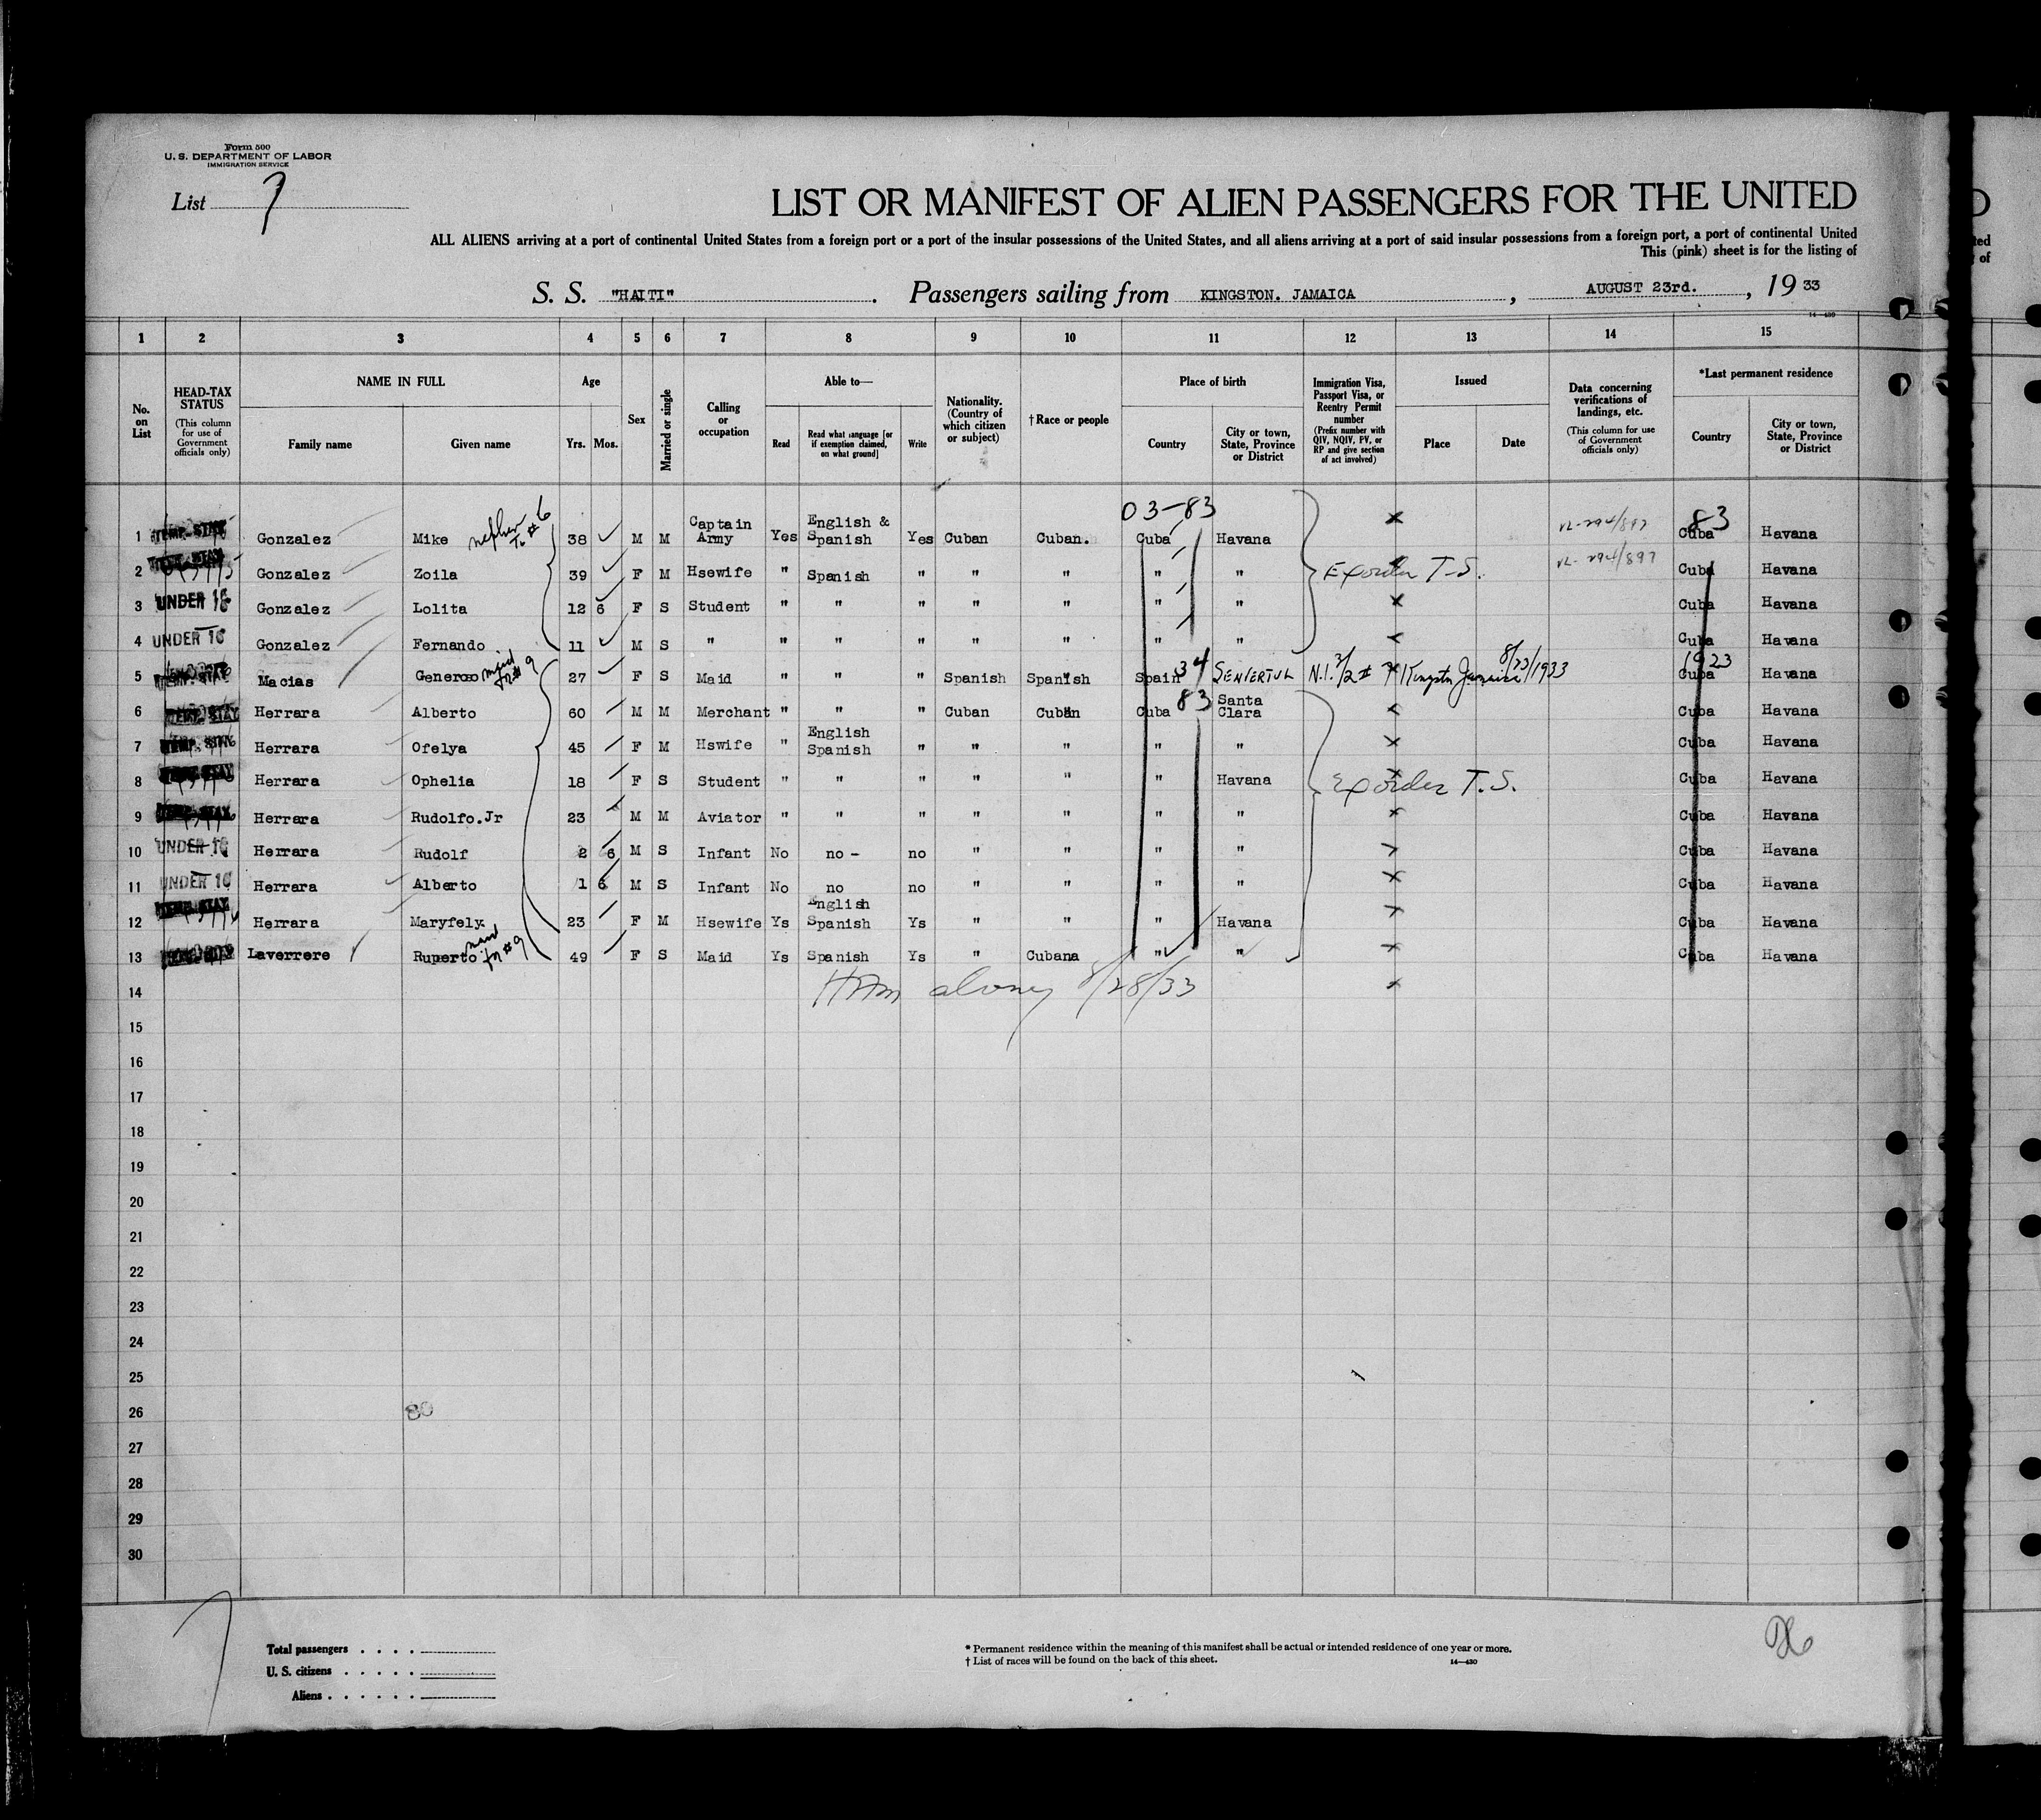 Form 500
U. S. DEPARTMENT OF LABOR
IMMIGRATION SERVICE
List 7
LIST OR MANIFEST OF ALIEN PASSENGERS FOR THE UNITED
ALL ALIENS arriving at a port of continental United States from a foreign port or a port of the insular possessions of the United States, and all aliens arriving at a port of said insular possessions from a foreign port, a port of continental United
This (pink) sheet is for the listing of
S. S. "HAITI". Passengers sailing from KINGSTON. JAMAICA, AUGUST 23rd., 19 33
14—430
1 2 3 4 5 6 7 8 9 10 11 12 13 14 15
No. on List
HEAD-TAX STATUS (This column for use of Government officials only)
NAME IN FULL Family name Given name
Age Yrs. Mos.
Sex
Married or single
Calling or occupation
Able to— Read Read what language [or if exemption claimed, on what ground] Write
Nationality. (Country of which citizen or subject)
†Race or people
Place of birth Country City or town, State, Province or District
Immigration Visa, Passport Visa, or Reentry Permit number (Prefix number with QIV, NQIV, PV, or RP and give section of act involved)
Issued Place Date
Data concerning verifications of landings, etc. (This column for use of Government officials only)
*Last permanent residence Country City or town, State, Province or District
03-83
1 TEMP. STAY Gonzalez Mike nephew To #6 38 M M Captain Army Yes English & Spanish Yes Cuban Cuban. Cuba Havana 83 Cuba Havana
2 Gonzalez Zoila 39 F M Hsewife " Spanish " " " " " T-S. Cuba Havana
3 UNDER 16 Gonzalez Lolita 12 6 F S Student " " " " " " " Cuba Havana
4 UNDER 16 Gonzalez Fernando 11 M S " " " " " " " " Cuba Havana
5 Macias Generoso maid to #9 27 F S Maid " " " Spanish Spanish Spain 34 Kingston Jamaica 8/23/1933 Cuba Havana
6 TEMP. STAY Herrara Alberto 60 M M Merchant " " " Cuban Cuban Cuba 83 Santa Clara Cuba Havana
7 Herrara Ofelya 45 F M Hswife " English Spanish " " " " " Cuba Havana
8 Herrara Ophelia 18 F S Student " " " " " " Havana Ex order T.S. Cuba Havana
9 Herrara Rudolfo.Jr 23 M M Aviator " " " " " " " Cuba Havana
10 UNDER 16 Herrara Rudolf 2 6 M S Infant No no - no " " " " Cuba Havana
11 UNDER 16 Herrara Alberto 1 6 M S Infant No no no " " " " Cuba Havana
12 Herrara Maryfely. 23 F M Hsewife Ys English Spanish Ys " " " Havana Cuba Havana
13 Laverrere Ruperto maid to #9 49 F S Maid Ys Spanish Ys " Cubana " " Cuba Havana
14 8/28/33
15
16
17
18
19
20
21
22
23
24
25
26 80
27
28
29
30
7
Total passengers . . . .
U. S. citizens . . . . .
Aliens . . . . . .
* Permanent residence within the meaning of this manifest shall be actual or intended residence of one year or more.
† List of races will be found on the back of this sheet.
14—430